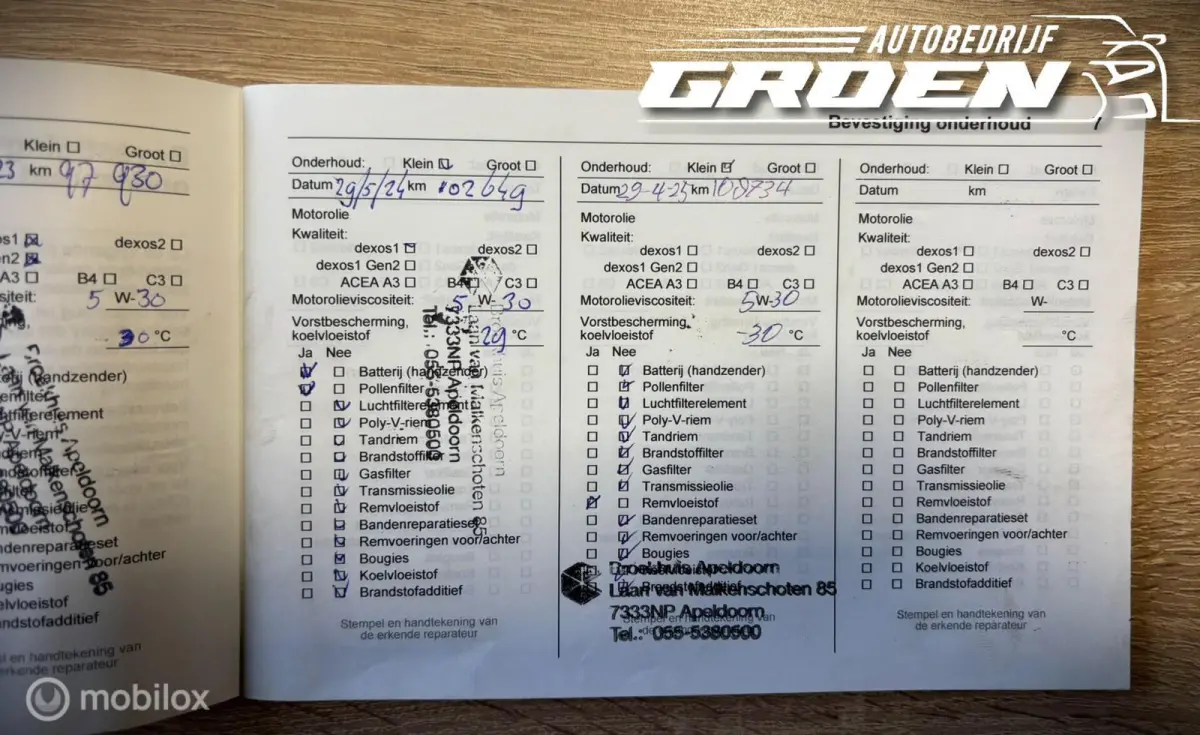 AUTOBEDRIJF
GROEN
Bevestiging onderhoud 7
Klein Groot
23 km 97 930
dexos2
B4 C3
5 W-30
30 °C
Apeldoorn
Malkenschoten 85
Stempel en handtekening van
erkende reparateur
Onderhoud: Klein Groot
Datum 29/5/24 km 102649
Motorolie
Kwaliteit:
dexos1 dexos2
dexos1 Gen2
ACEA A3 B4 C3
Motorolieviscositeit: 5 W-30
Vorstbescherming,
koelvloeistof 29 °C
Ja Nee
Batterij (handzender)
Pollenfilter
Luchtfilterelement
Poly-V-riem
Tandriem
Brandstoffilter
Gasfilter
Transmissieolie
Remvloeistof
Bandenreparatieset
Remvoeringen voor/achter
Bougies
Koelvloeistof
Brandstofadditief
Stempel en handtekening van
de erkende reparateur
Broekhuis Apeldoorn
Laan van Malkenschoten 85
7333NP Apeldoorn
Tel.: 055-5380500
Onderhoud: Klein Groot
Datum 29-4-25 km 108734
Motorolie
Kwaliteit:
dexos1 dexos2
dexos1 Gen2
ACEA A3 B4 C3
Motorolieviscositeit: 5W-30
Vorstbescherming,
koelvloeistof 30 °C
Ja Nee
Batterij (handzender)
Pollenfilter
Luchtfilterelement
Poly-V-riem
Tandriem
Brandstoffilter
Gasfilter
Transmissieolie
Remvloeistof
Bandenreparatieset
Remvoeringen voor/achter
Bougies
Brandstofadditief
Broekhuis Apeldoorn
Laan van Malkenschoten 85
7333NP Apeldoorn
Tel.: 055-5380500
Onderhoud: Klein Groot
Datum km
Motorolie
Kwaliteit:
dexos1 dexos2
dexos1 Gen2
ACEA A3 B4 C3
Motorolieviscositeit: W-
Vorstbescherming,
koelvloeistof °C
Ja Nee
Batterij (handzender)
Pollenfilter
Luchtfilterelement
Poly-V-riem
Tandriem
Brandstoffilter
Gasfilter
Transmissieolie
Remvloeistof
Bandenreparatieset
Remvoeringen voor/achter
Bougies
Koelvloeistof
Brandstofadditief
Stempel en handtekening van
de erkende reparateur
mobilox